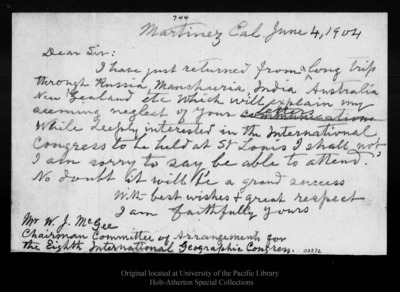 744
Martinez Cal. June 4, 1904
Dear Sir:
I have just returned from a long trip
through Russia, Manchuria, India Australia
New Zealand etc which will explain my
seeming neglect of your letter
While deeply interested in the International
Congress to be held at St Louis I shall not
I am sorry to say be able to attend.
No doubt it will be a grand success
With best wishes & great respect
I am faithfully yours
Mr W. J. McGee
Chairman Committee of Arrangements for
the Eighth International Geographic Congress.
Original located at University of the Pacific Library
Holt-Atherton Special Collections